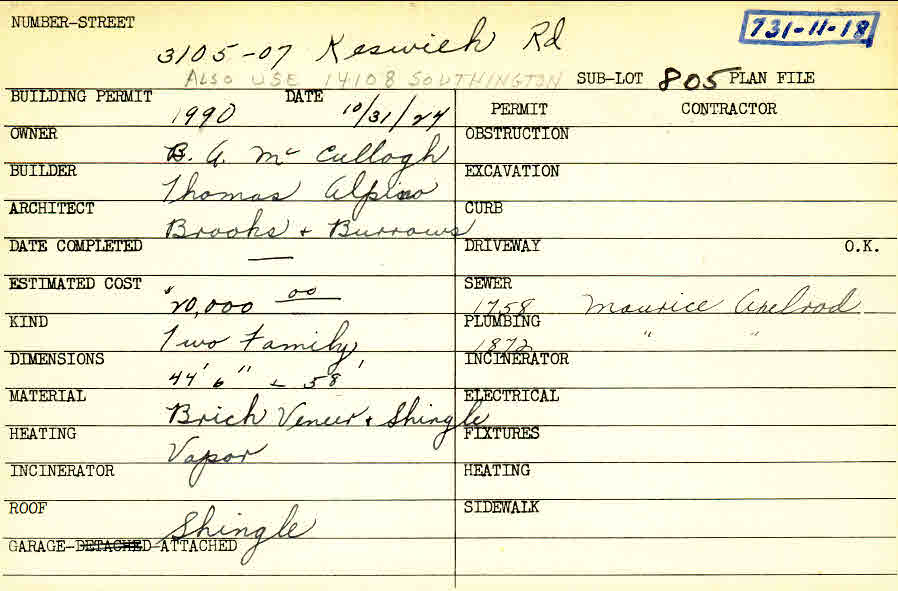 NUMBER-STREET 3105-07 Keswick Rd 731-11-18
ALSO USE 14108 SOUTHINGTON SUB-LOT 805 PLAN FILE
BUILDING PERMIT 1990 DATE 10/31/24 PERMIT CONTRACTOR
OWNER B. A. McCullogh OBSTRUCTION
BUILDER Thomas Alpino EXCAVATION
ARCHITECT Brooks + Burrows CURB
DATE COMPLETED — DRIVEWAY O.K.
ESTIMATED COST $20,000 00 SEWER 1758 Maurice Axelrod
KIND Two Family PLUMBING 1872 " "
DIMENSIONS 44' 6" x 58' INCINERATOR
MATERIAL Brick Veneer + Shingle ELECTRICAL
HEATING Vapor FIXTURES
INCINERATOR HEATING
ROOF Shingle SIDEWALK
GARAGE-DETACHED-ATTACHED